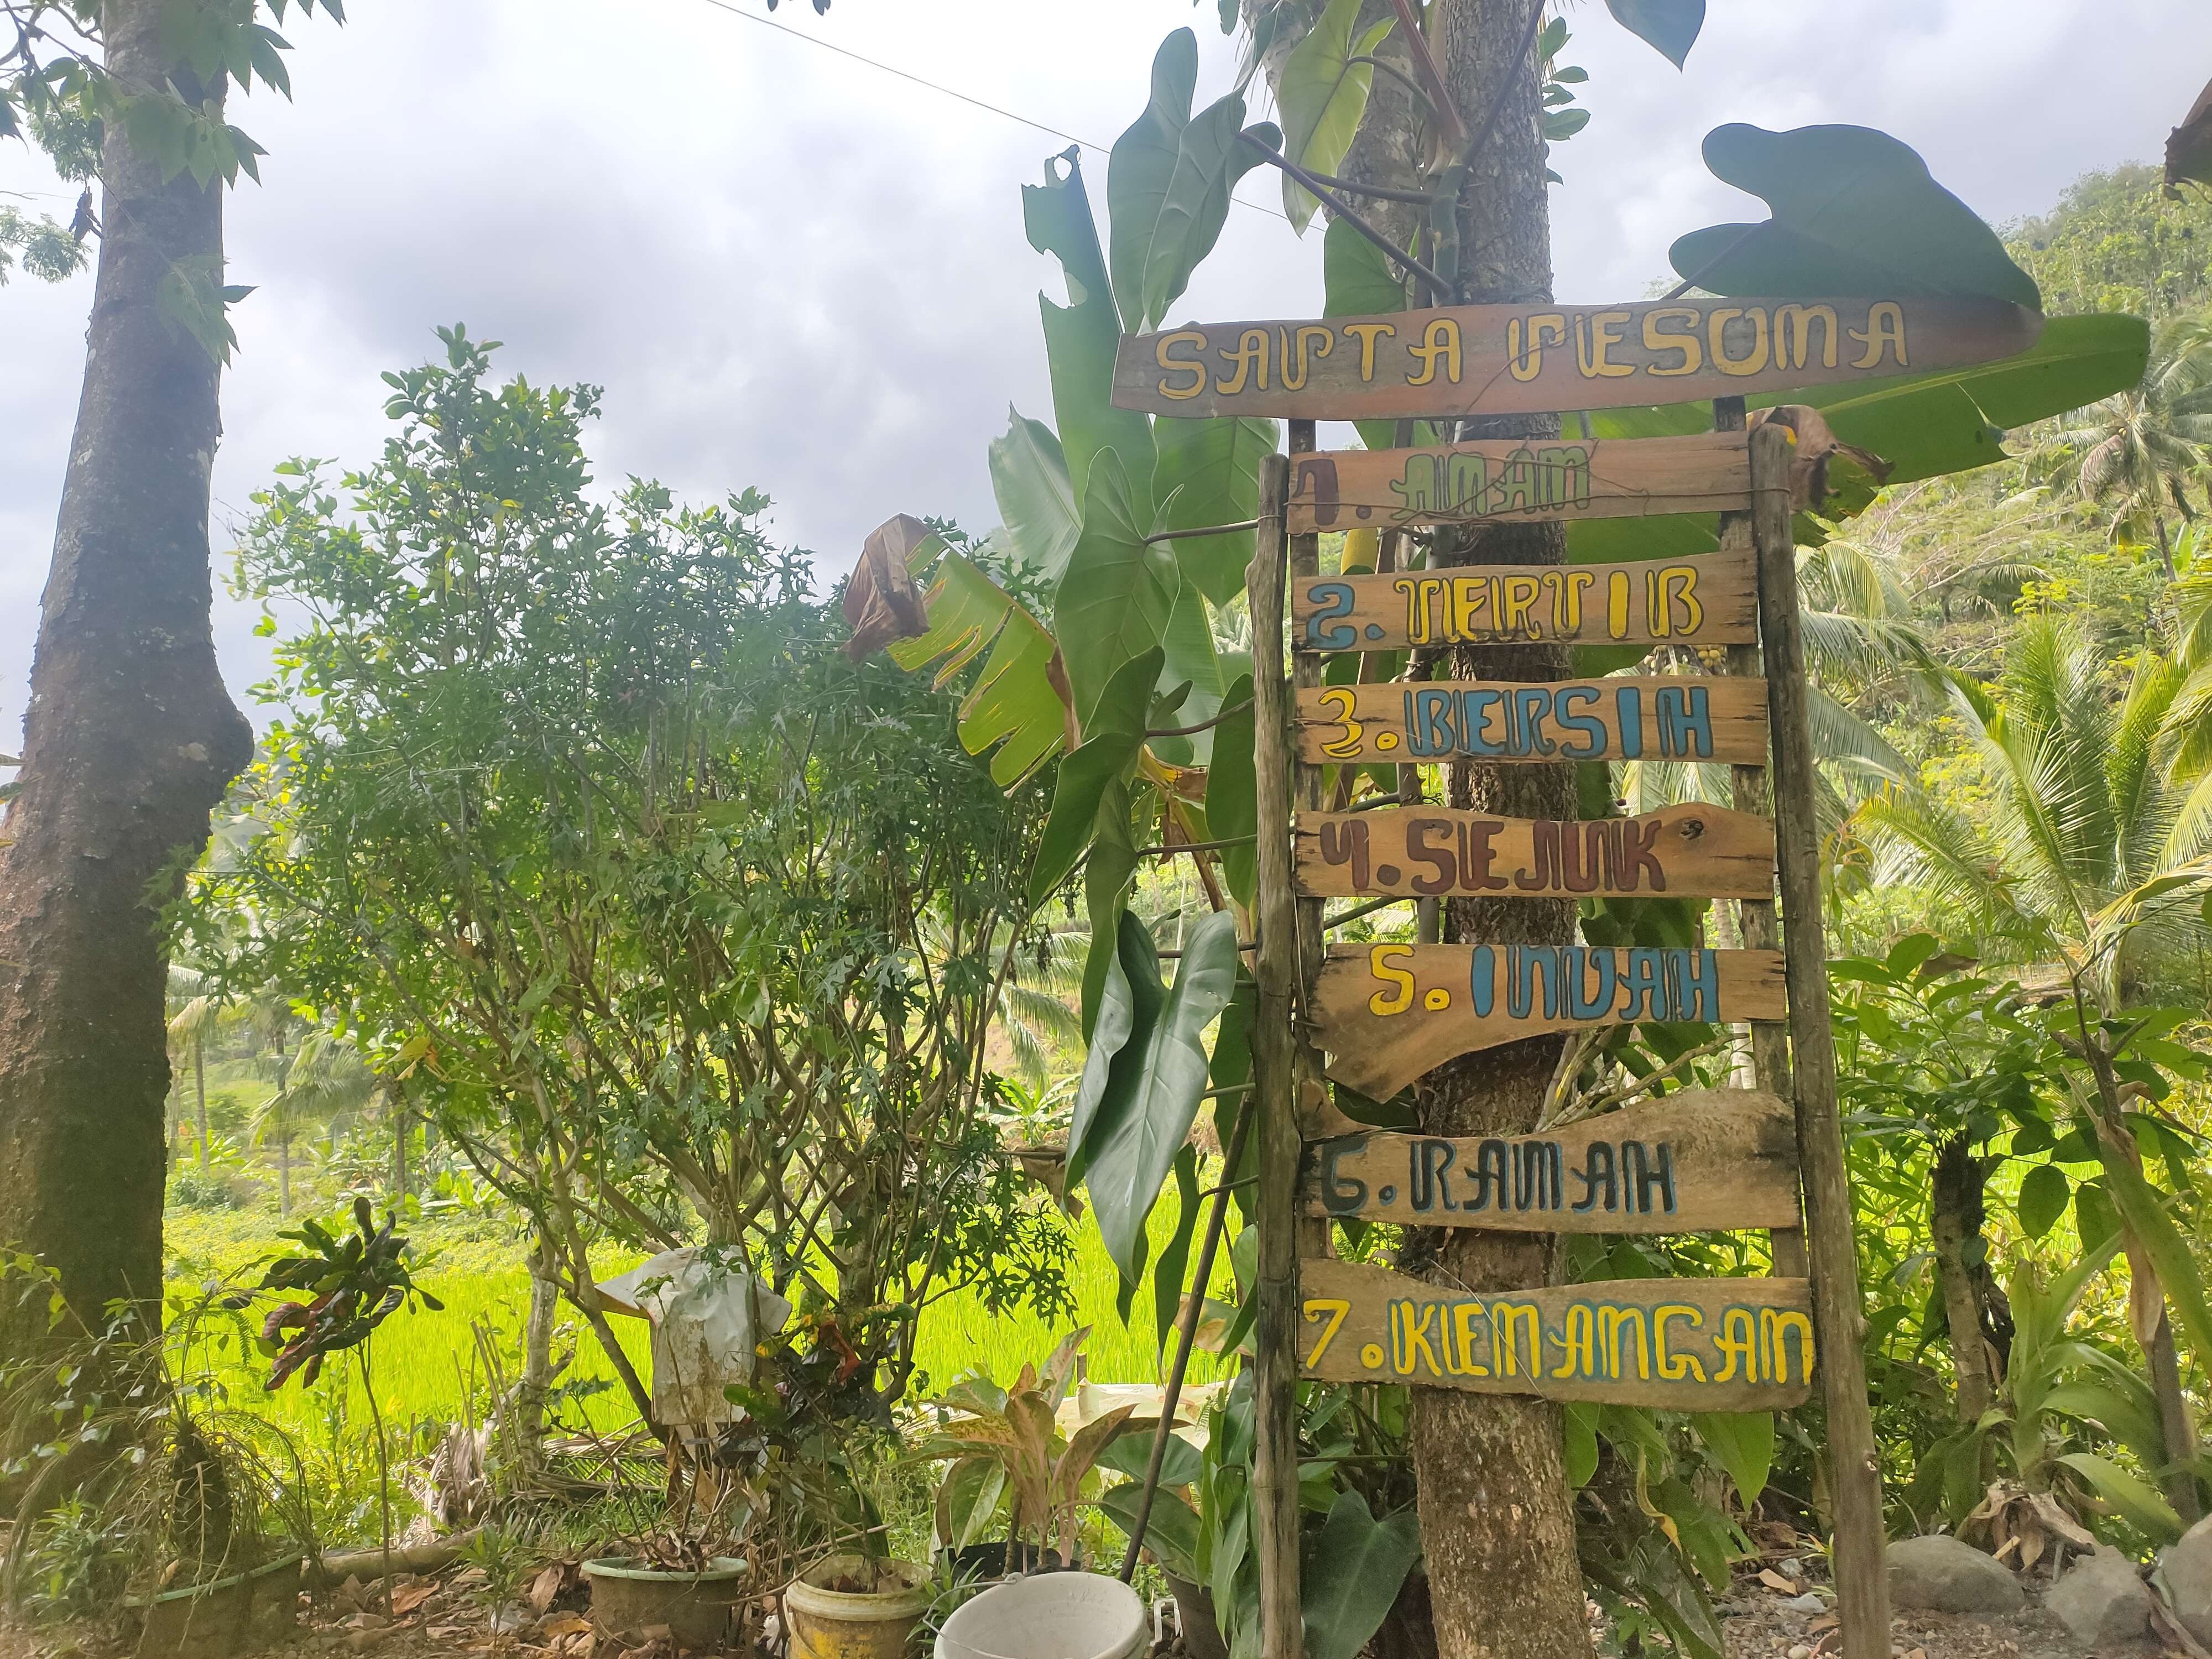 SAPTA PESONA
1. AMAN
2. TERTIB
3. BERSIH
4. SEJUK
5. INDAH
6. RAMAH
7. KENANGAN